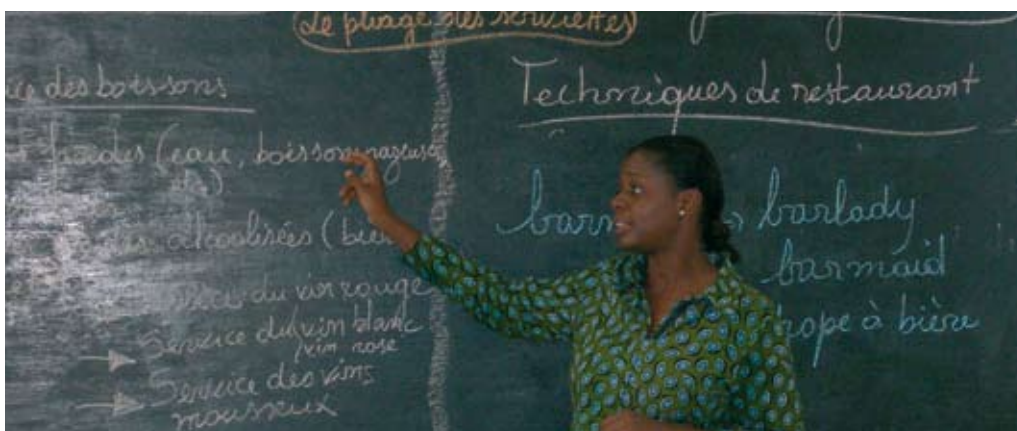 (Le pliage des serviettes)
ice des boissons
froides (eau, boissons gazeuses
etc)
alcoolisées (biè
Service du vin rouge
Service du vin blanc
/vin rosé
Service des vins
mousseux
Techniques de restaurant
barm
barlady
barmaid
hope à bière